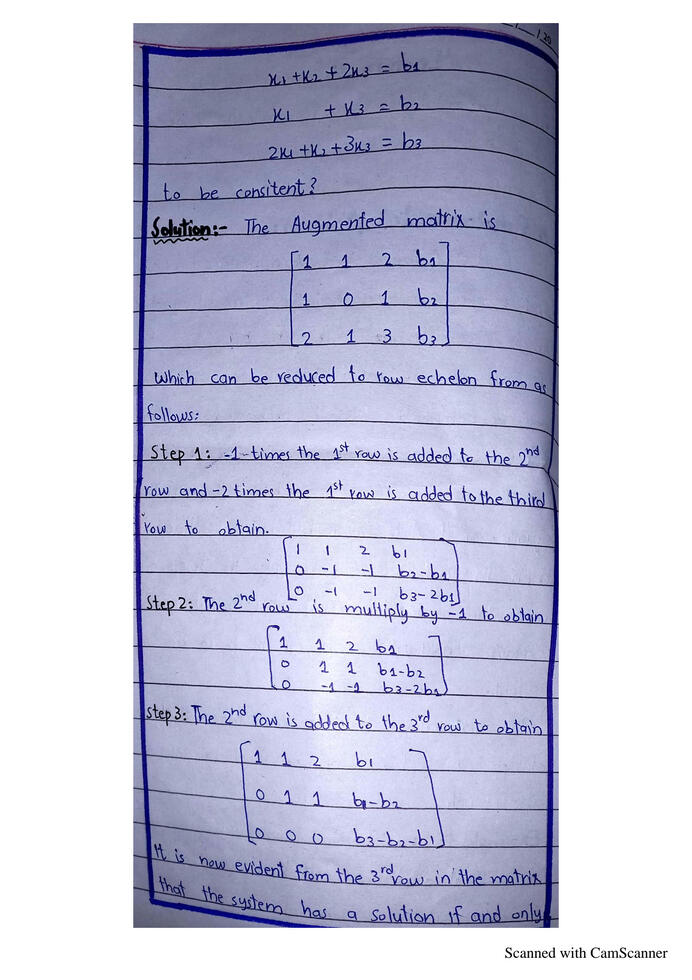 / /20
x₁ + x₂ + 2x₃ = b₁
x₁ + x₃ = b₂
2x₁ + x₂ + 3x₃ = b₃
to be consitent?
Solution:- The Augmented matrix is
1 1 2 b₁
1 0 1 b₂
2 1 3 b₃
Which can be reduced to row echelon from as
follows:
Step 1: -1 times the 1st row is added to the 2nd
row and -2 times the 1st row is added to the third
row to obtain.
1 1 2 b₁
0 -1 -1 b₂-b₁
0 -1 -1 b₃-2b₁
Step 2: The 2nd row is multiply by -1 to obtain
1 1 2 b₁
0 1 1 b₁-b₂
0 -1 -1 b₃-2b₁
Step 3: The 2nd row is added to the 3rd row to obtain
1 1 2 b₁
0 1 1 b₁-b₂
0 0 0 b₃-b₂-b₁
It is now evident from the 3rd row in the matrix
that the system has a solution if and only
Scanned with CamScanner